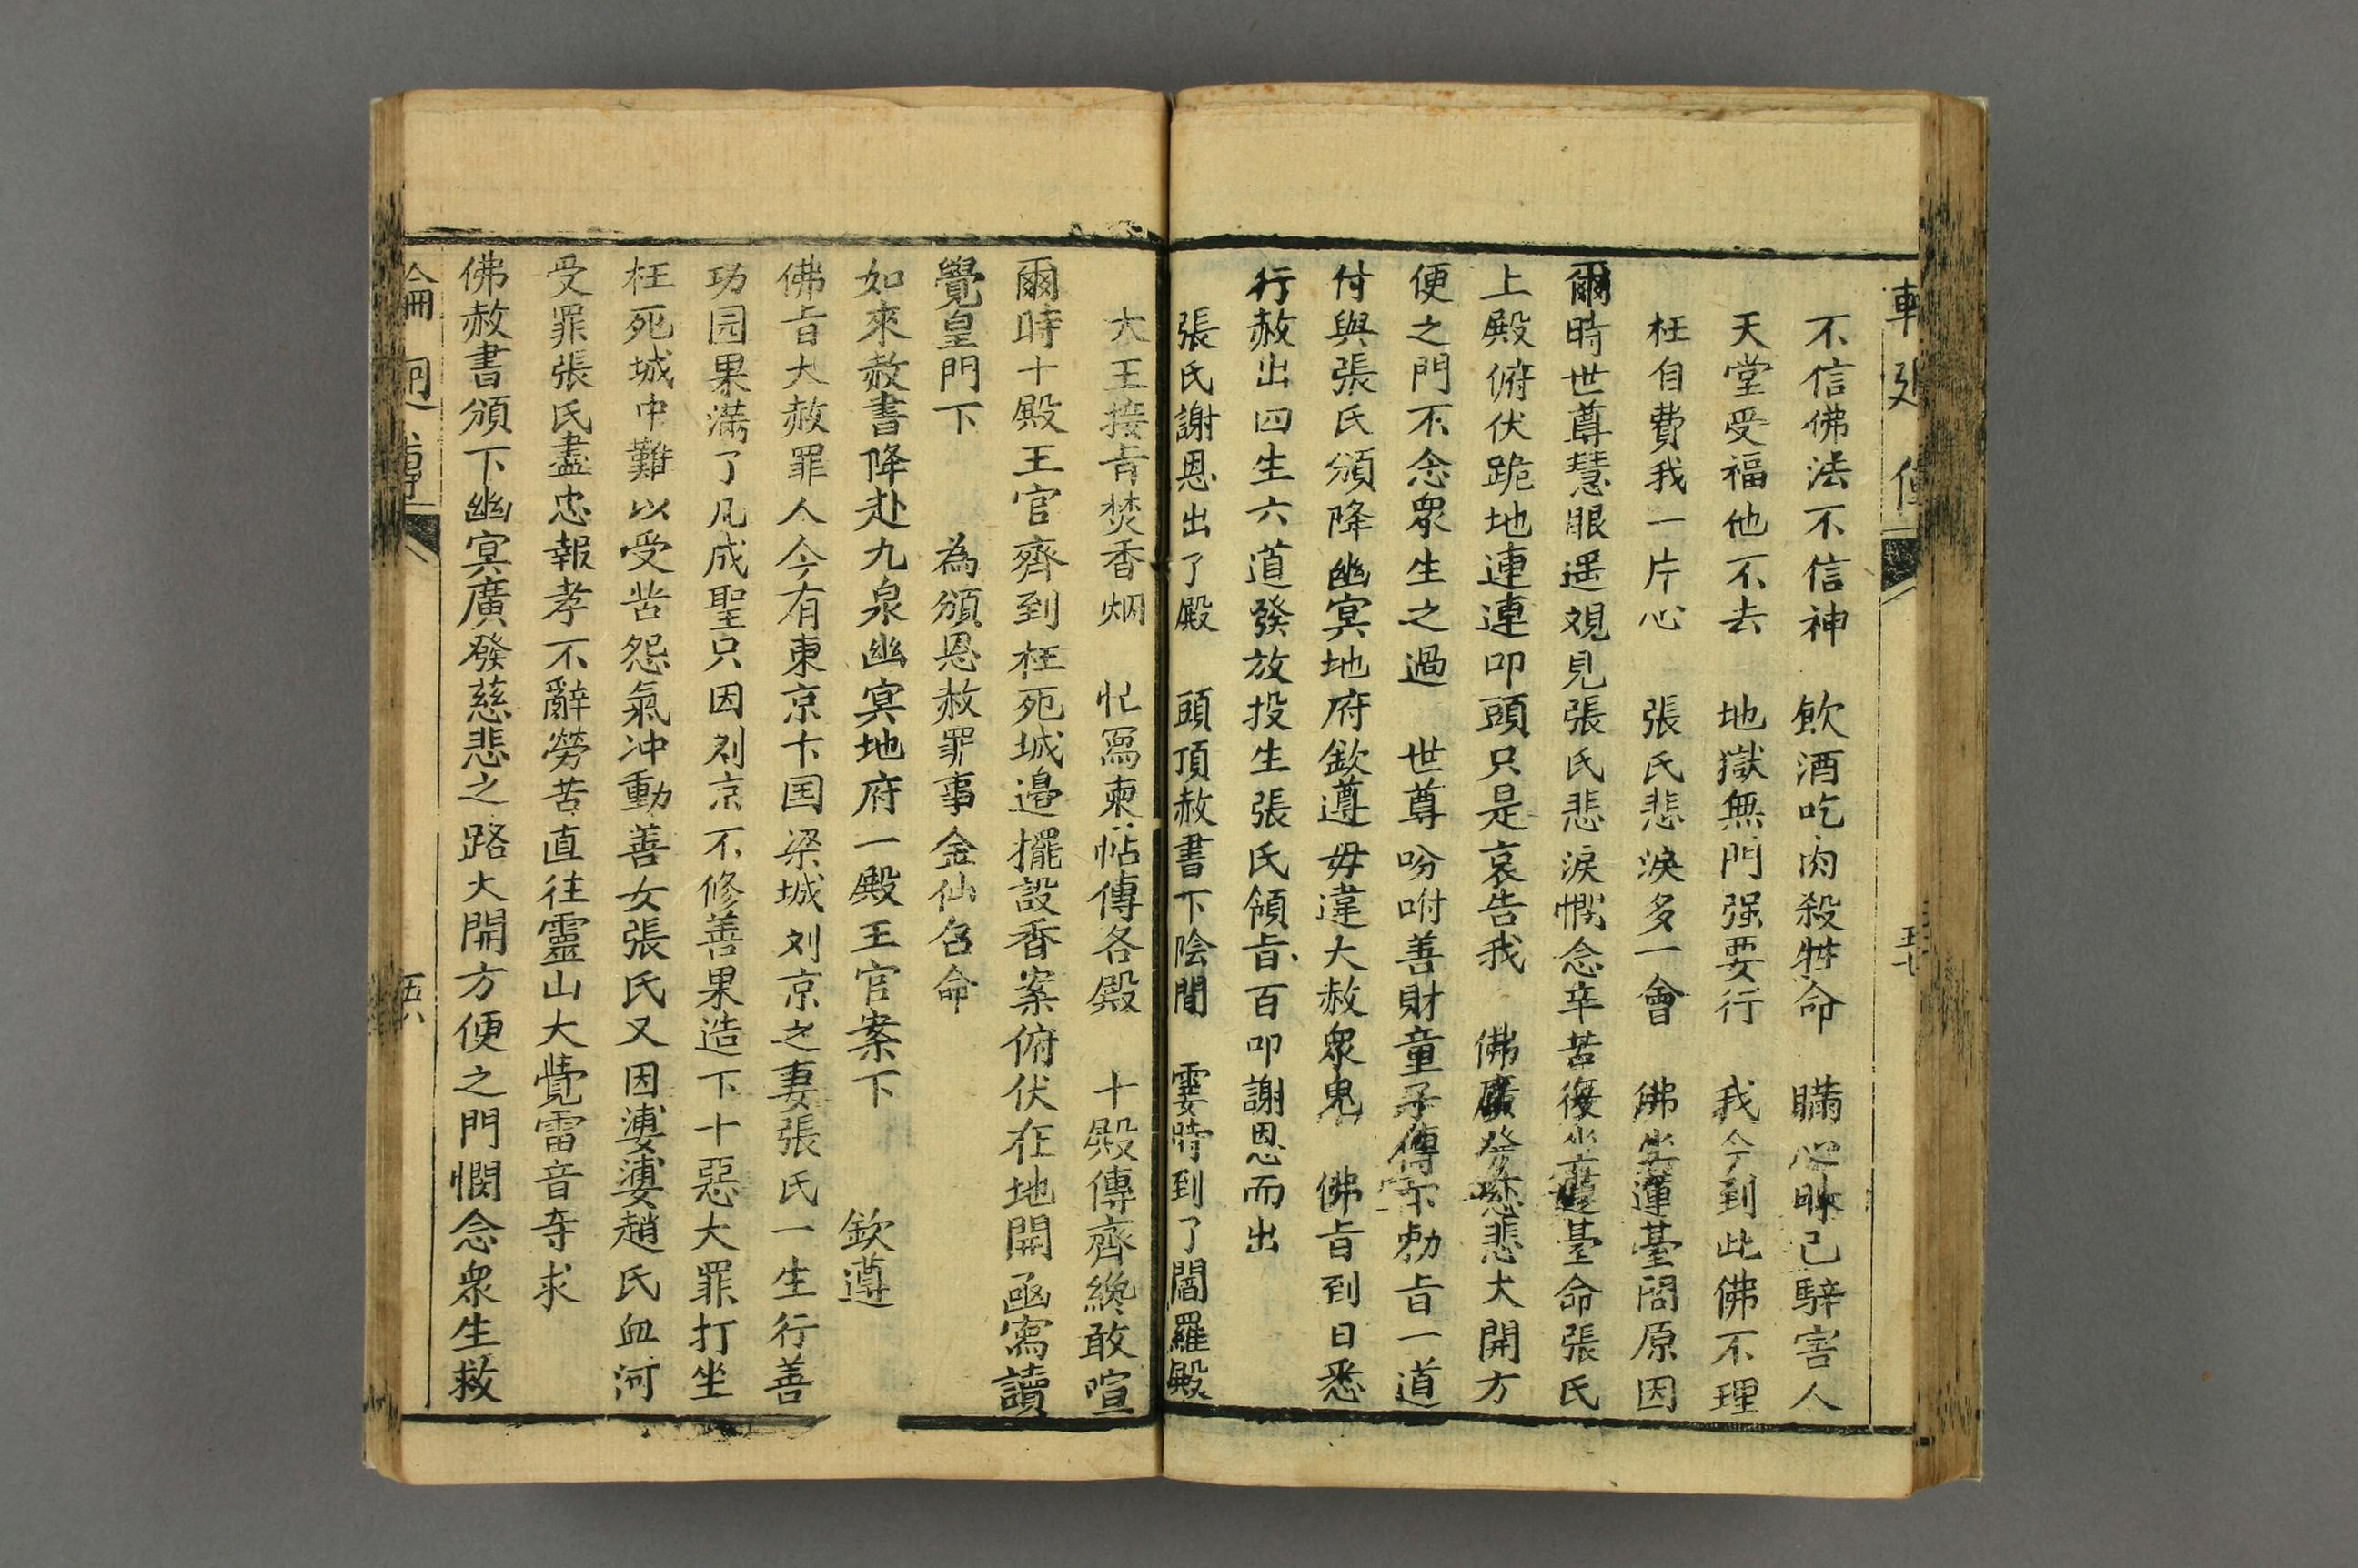 不信佛法不信神　飲酒吃肉殺牲命　瞞心昧己騂害人
天堂受福他不去　地獄無門强要行　我今到此佛不理
枉自費我一片心　張氏悲淚多一會　佛坐蓮臺問原因
爾時世尊慧眼遥覌見張氏悲淚憫念辛苦復坐蓮臺命張氏
上殿俯伏跪地連連叩頭只是哀告我　佛廣發慈悲大開方
便之門不念衆生之過　世尊吩咐善財童子傳下勅旨一道
付與張氏頒降幽冥地府欽遵毋違大赦衆鬼　佛旨到日悉
行赦出四生六道發放投生張氏領旨百叩謝恩而出
張氏謝恩出了殿　頭頂赦書下陰間　霎時到了閻羅殿
大王接旨焚香炳　忙寫柬帖傳各殿　十殿傳齊纔敢喧
爾時十殿王官齊到枉死城邉擺設香案俯伏在地開函寫讀
覺皇門下　為頒恩赦罪事金仙召命
如來赦書降赴九泉幽冥地府一殿王官案下　欽遵
佛旨大赦罪人今有東京卞国梁城刘京之妻張氏一生行善
功园果滿了凡成聖只因刘京不修善果造下十惡大罪打坐
枉死城中難以受苦怨氣冲動善女張氏又因婆婆趙氏血河
受罪張氏盡忠報孝不辭勞苦直往靈山大覺雷音寺求
佛赦書頒下幽冥廣發慈悲之路大開方便之門憫念衆生救